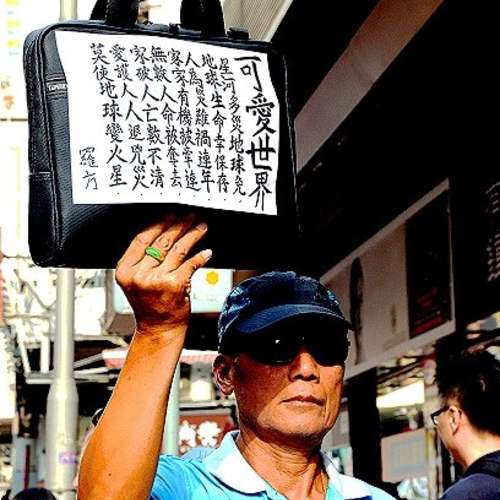 可愛世界
星河多災地球免
地球生命幸保存
人為災難禍連年
家家有機被牽連
無數人命被奪去
家破人亡數不清
愛護人人退兇災
莫使地球變火星
羅方